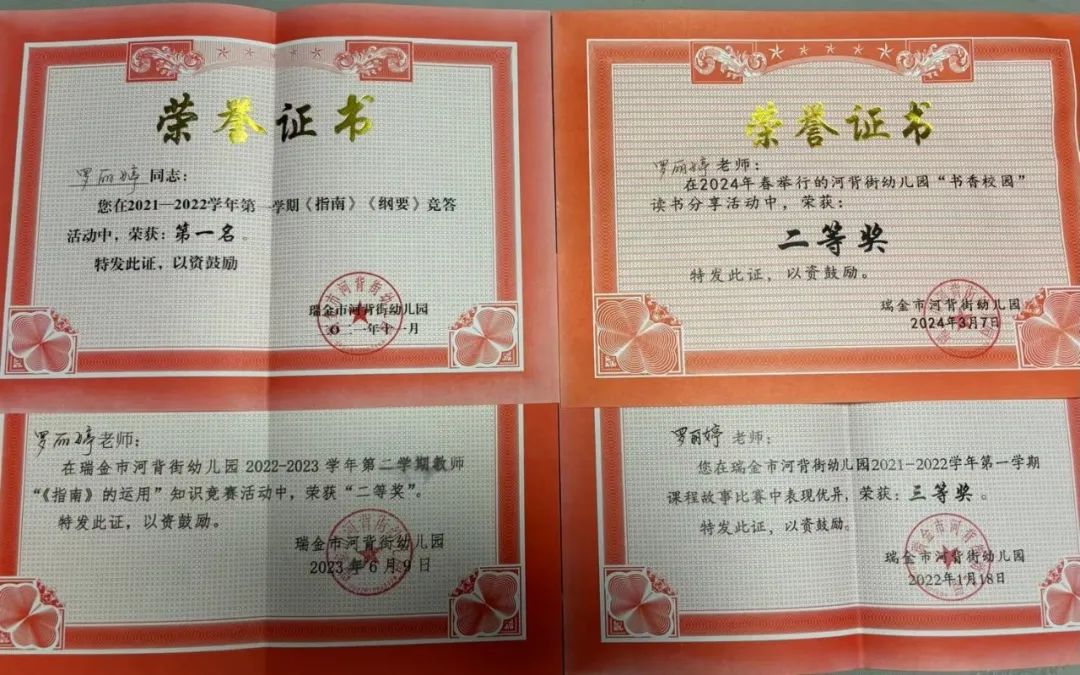 荣誉证书
罗丽婷同志：
您在2021—2022学年第一学期《指南》《纲要》竞答
活动中，荣获：第一名。
特发此证，以资鼓励
瑞金市河背街幼儿园
二〇二一年十一月
荣誉证书
罗丽婷老师：
在2024年春举行的河背街幼儿园“书香校园”
读书分享活动中，荣获：
二等奖
特发此证，以资鼓励。
瑞金市河背街幼儿园
2024年3月7日
罗丽婷老师：
在瑞金市河背街幼儿园 2022-2023 学年第二学期教师
“《指南》的运用”知识竞赛活动中，荣获“二等奖”。
特发此证，以资鼓励。
瑞金市河背街幼儿园
2023年6月9日
罗丽婷老师：
您在瑞金市河背街幼儿园2021-2022学年第一学期
课程故事比赛中表现优异，荣获：三等奖。
特发此证，以资鼓励。
瑞金市河背街幼儿园
2022年1月18日